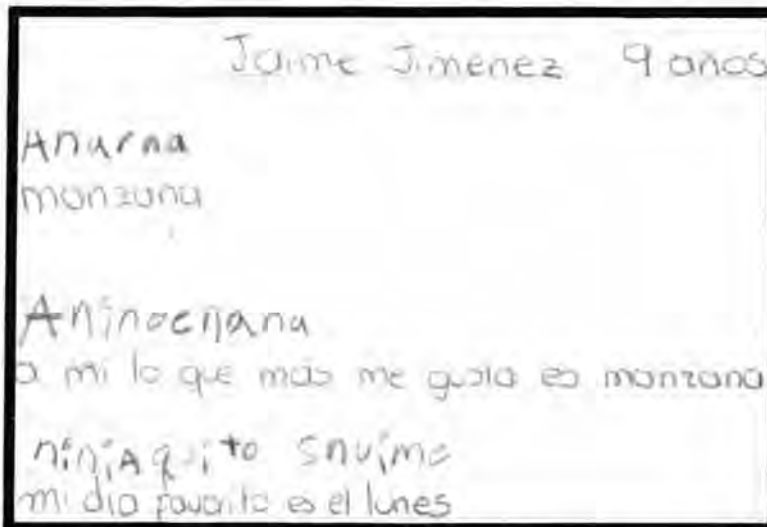 Jaime Jimenez 9 años
Anurna
manzana
Aninoenana
a mi lo que más me gusta es manzana
niniAquito snuimo
mi dia favorito es el lunes